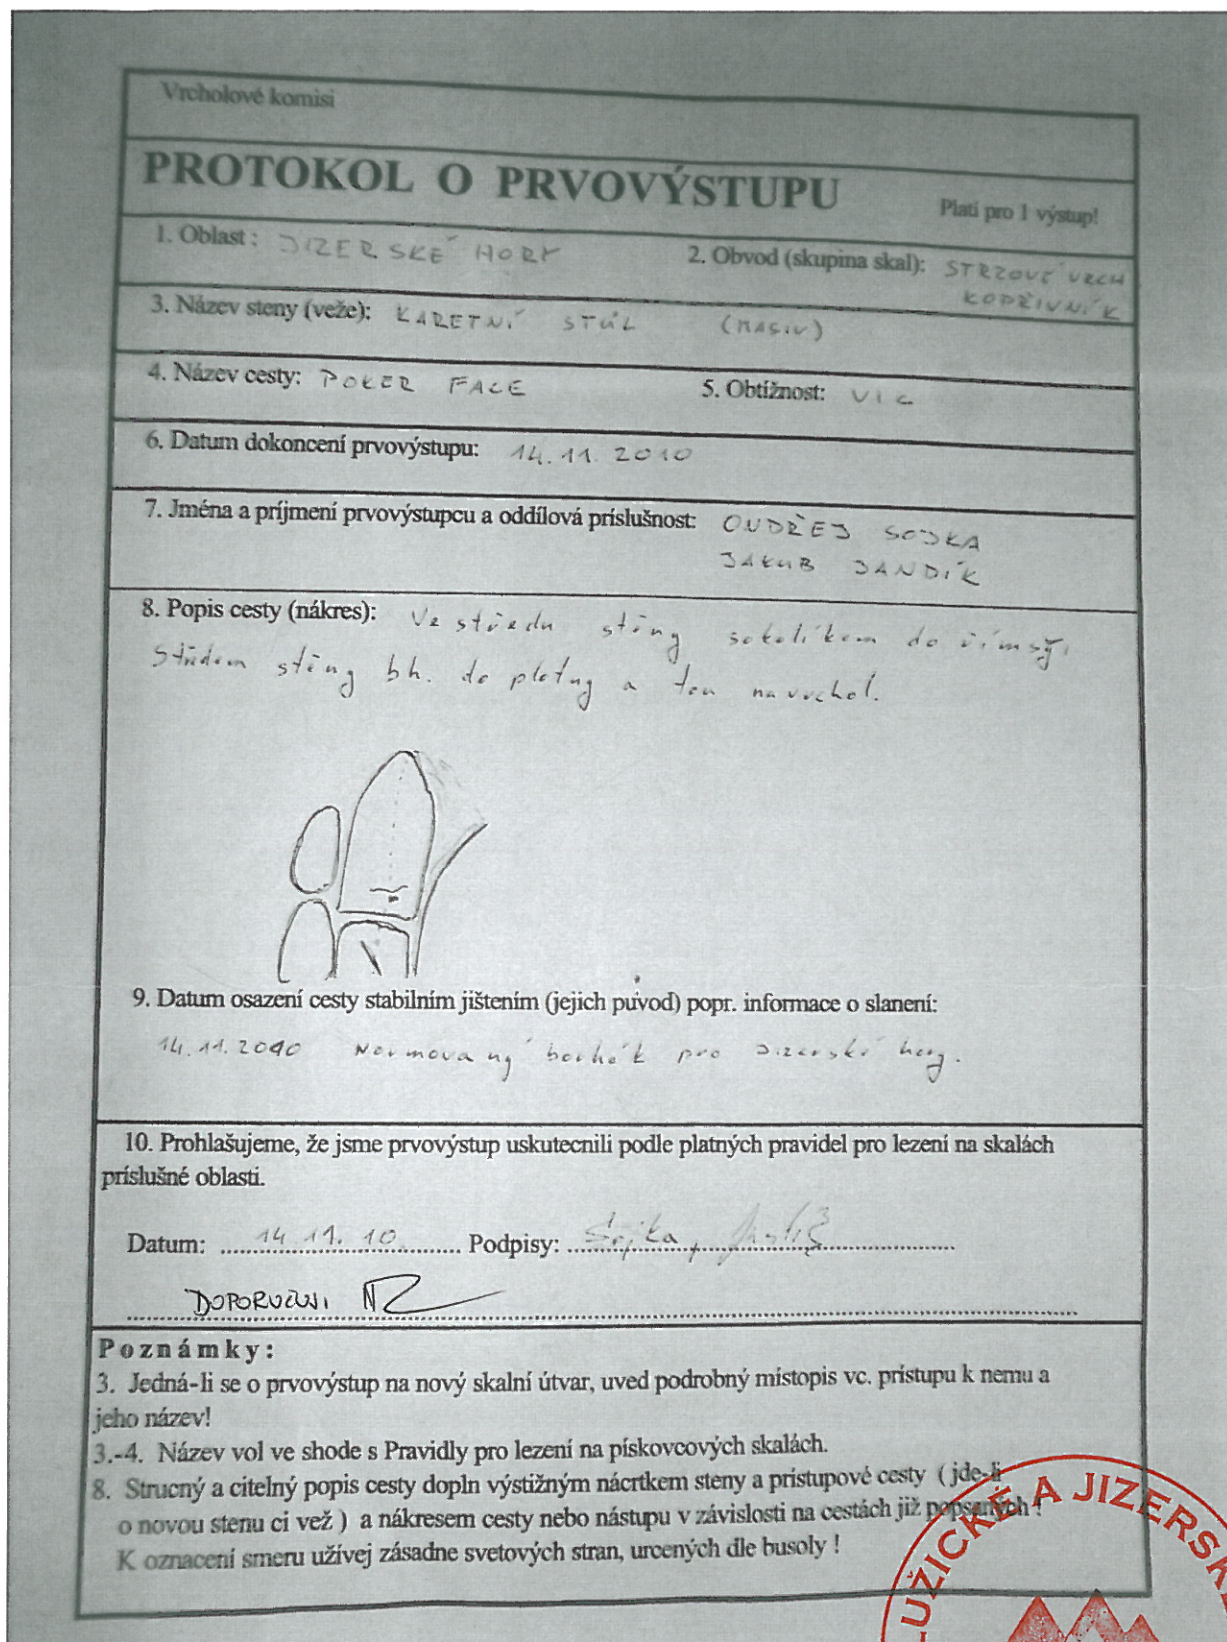 Vrcholové komisi
PROTOKOL O PRVOVÝSTUPU
Platí pro 1 výstup!
1. Oblast: JIZERSKÉ HORY
2. Obvod (skupina skal): STRŽOVÝ VRCH
KOPŘIVNÍK
3. Název steny (veže): KARETNÍ STŮL (MASIV)
4. Název cesty: POKER FACE
5. Obtížnost: VIC
6. Datum dokoncení prvovýstupu: 14.11.2010
7. Jména a príjmení prvovýstupcu a oddílová príslušnost: ONDŘEJ SOJKA
JAKUB JANDÍK
8. Popis cesty (nákres): Ve středu stěny sokolíkem do římsy,
Středem stěny bh. do plotny a tou na vrchol.
9. Datum osazení cesty stabilním jištením (jejich puvod) popr. informace o slanení:
14.11.2010 Normovaný borhák pro Jizerské hory.
10. Prohlašujeme, že jsme prvovýstup uskutecnili podle platných pravidel pro lezení na skalách
príslušné oblasti.
Datum: 14.11.10 Podpisy: Sojka,
DOPORUČUJI
Poznámky:
3. Jedná-li se o prvovýstup na nový skalní útvar, uved podrobný místopis vc. prístupu k nemu a
jeho název!
3.-4. Název vol ve shode s Pravidly pro lezení na pískovcových skalách.
8. Strucný a citelný popis cesty dopln výstižným nácrtkem steny a prístupové cesty ( jde-li
o novou stenu ci vež ) a nákresem cesty nebo nástupu v závislosti na cestách již popsaných !
K oznacení smeru užívej zásadne svetových stran, urcených dle busoly !
LUŽICKÉ A JIZERSKÉ